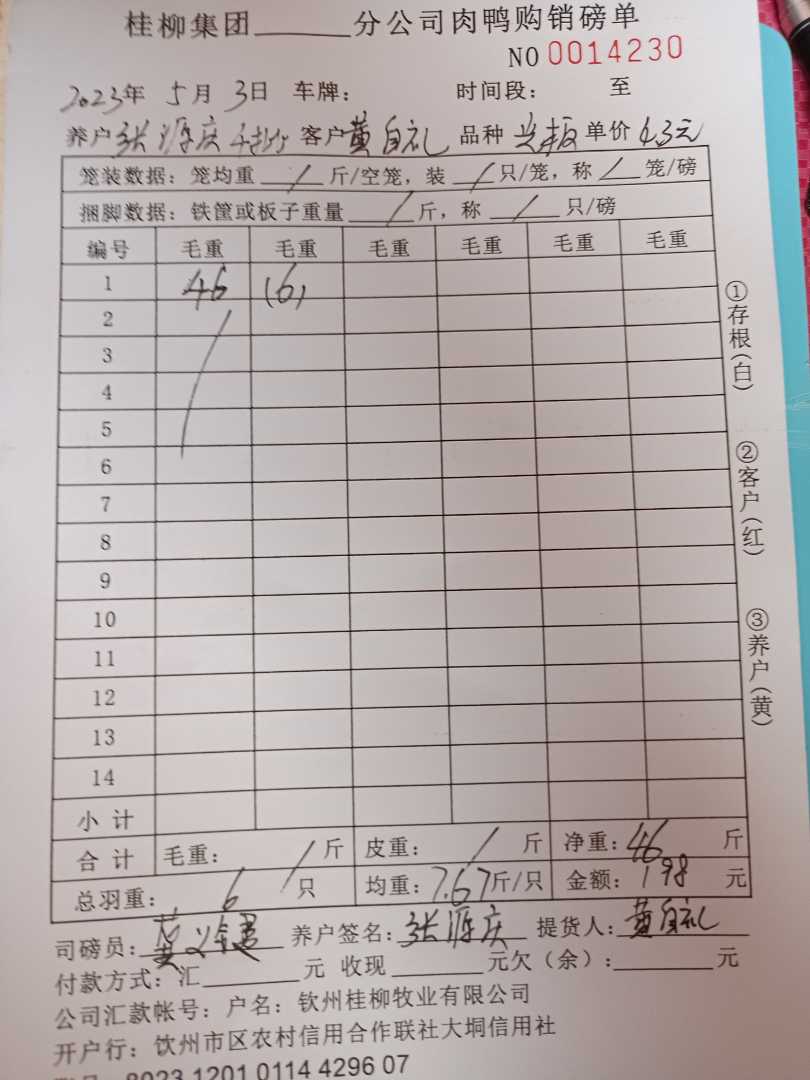 桂柳集团______分公司肉鸭购销磅单
NO 0014230
2023年 5月 3日 车牌： 时间段： 至
养户 张源庆 客户 黄自礼 品种 单价 4.3元
笼装数据：笼均重 / 斤/空笼，装 / 只/笼，称 / 笼/磅
捆脚数据：铁筐或板子重量 / 斤，称 / 只/磅
编号 毛重 毛重 毛重 毛重 毛重 毛重
1 46 (6)
2
3
4
5
6
7
8
9
10
11
12
13
14
小计
合计 毛重： / 斤 皮重： / 斤 净重：46 斤
总羽重： 6 只 均重：7.67斤/只 金额：198 元
司磅员： 养户签名：张源庆 提货人：黄自礼
付款方式：汇______元 收现______元欠（余）：______元
公司汇款帐号：户名：钦州桂柳牧业有限公司
开户行：钦州市区农村信用合作联社大垌信用社
8023 1201 0114 4296 07
①存根（白）
②客户（红）
③养户（黄）